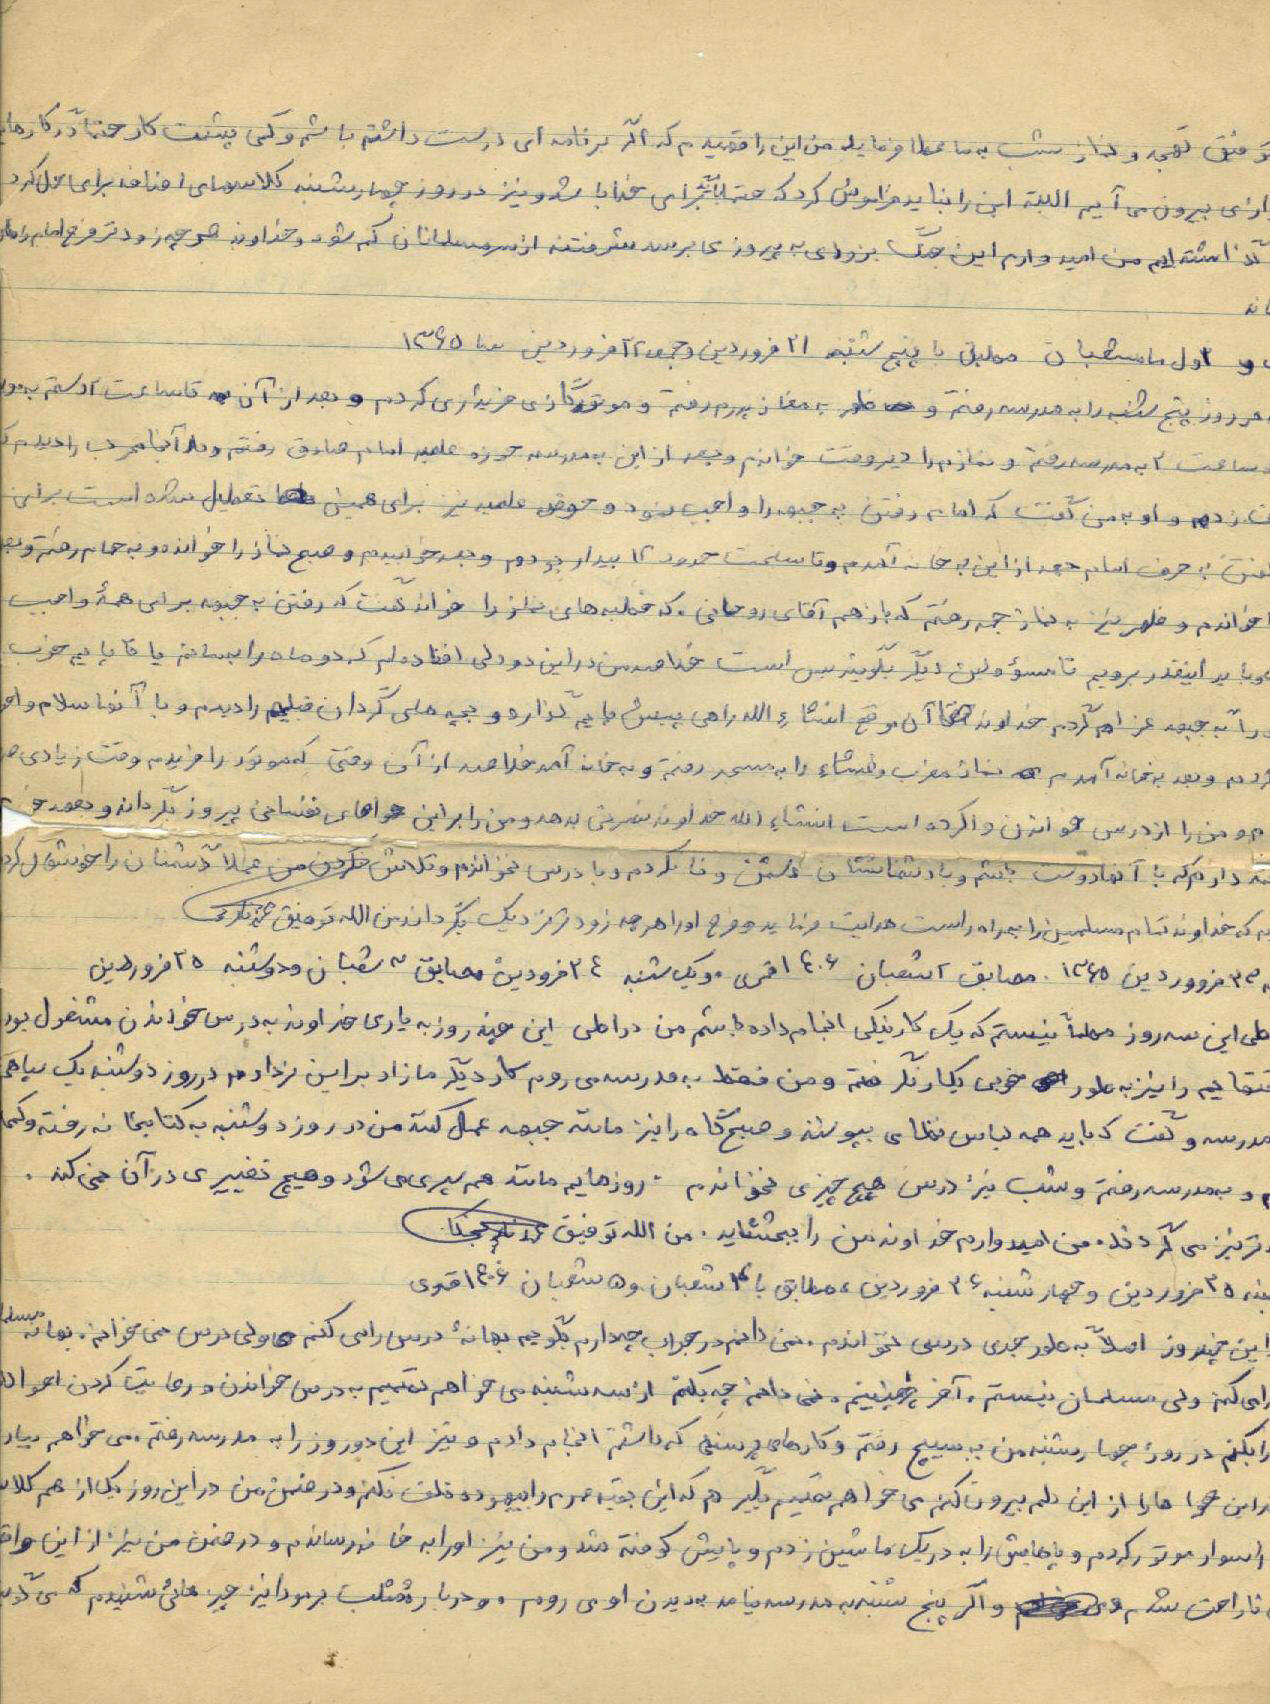 توفیق تهجد و نماز شب به ما عطا فرماید من این را فهمیدم که اگر برنامه ای درست داشته باشم و کمی پشت کار حتماً در کارهایم
بیرون می آیم البته این را نباید فراموش کرد که حتماً باید برای خدا باشد و نیز در روز چهارشنبه کلاسهای اضافه برای حل کرد
گذاشته ایم من امیدوارم این جنگ بزودی به پیروزی برسد شر فتنه از سر مسلمانان کم شود و خداوند هر چه زودتر فرج امام را
و اول ماه شعبان مطابق با پنج شنبه ۲۱ فروردین و جمعه ۲۲ فروردین ۱۳۶۵
در روز پنج شنبه را به مدرسه رفتم و ظهر به مغازه پدرم رفتم و موتور گازی خریداری کردم و بعد از آن تا ساعت
ساعت ۲ به مدرسه رفتم و نمازم را دیر وقت خواندم و بعد از این به مدرسه حوزه علمیه امام صادق رفتم و در آنجا را دیدم
زدم و او به من گفت که امام رفتن به جبهه را واجب نمود و حوزه علمیه نیز برای همین تعطیل شده است برای
به حرف امام بعد از این به خانه آمدم و تا ساعت حدود ۱۲ بیدار بودم و بعد خوابیدم و صبح نماز را خوانده و به حمام رفتم و بعد
خواندم و ظهر نیز به نماز جمعه رفتم که باز هم آقای روحانی که خطبه های نماز را خواند گفت که رفتن به جبهه برای همه واجب
باید اینقدر برویم تا مسؤولین دیگر بگویند بس است خلاصه من در این دو دلی افتاده ام که دو ماه را بمانم یا
را به جبهه عزام گردم خداوند آن موقع انشاء الله راهی پیش پایم گذارد و بچه های گردان قبلیم را دیدم و با آنها سلام و
کردم و بعد به خانه آمدم نماز مغرب و عشاء را به مسجد رفتم و به خانه آمدم خلاصه از آن وقتی که موتور را خریدم وقت زیادی
و من را از درس خواندن وا کرده است انشاء الله خداوند نصرتی بدهد و من را بر این هواهای نفسانی پیروز بگرداند و
دارم که با آنها دوست باشم و با دشمنانشان دشمن وفا نکردم و با درس نخواندم و تلاش نکردن من عملاً دشمنان را خوشحال کرد
که خداوند تمام مسلمین را به راه راست هدایت فرماید و فرج او را هر چه زودتر نزدیک بگرداند من الله توفیق
۲۳ فروردین ۱۳۶۵ . مصابق ۲ شعبان ۱۴۰۶ قمری . و یک شنبه ۲۴ فرودین مصابق ۳ شعبان و دوشنبه ۲۵ فروردین
طی این سه روز مطمئاً نیستم که یک کار نیکی انجام داده باشم من در طی این چند روز به یاری خداوند به درس خواندن مشغول بود
را نیز به طور خوبی بکار نگرفتم و من فقط به مدرسه می روم کار دیگر مازاد بر این نزدارم در روز دوشنبه یک سپاهی
مدرسه و گفت که باید همه لباس نظامی بپوشند و صبح گاه را نیز مانند جبهه عمل کنند من در روز دوشنبه به کتابخانه رفته و
و به مدرسه رفتم و شب نیز درس هیچ چیزی نخواندم . روزهایم مانند هم سپری می شود و هیچ تغییری در آن نمی کند .
نیز می گردند . من امیدوارم خداوند من را ببخشاید . من الله توفیق
۲۵ فروردین و چهارشنبه ۲۶ فروردین ، مطابق با ۴ شعبان و ۵ شعبان ۱۴۰۶ قمری
این چند روز اصلاً به طور جدی درسی نخواندم . نمی دانم در جواب چه دارم بگویم بهانهٔ درس را می کنم ولی درس نمی خوانم . بهانه مسلمان
را می کنم ولی مسلمان نیستم . آخر چه نمی دانم چه بکنم از سه شنبه می خواهم تصمیم به درس خواندن و رعایت کردن
را بکنم در روز چهارشنبه من به بسیج رفتم و کارهای که داشتم انجام دادم و نیز این دو روز را به مدرسه رفتم . می خواهم
این هوا ها را از این دلم بیرون کنم می خواهم تصمیم بگیرم که این بقیه عمرم را بیهوده تلف نکنم و در ضمن من در این روز یکی از هم کلاس
سوار موتور کردم و پاهایش را به در یک ماشین زدم و پایش کوفته شد و من نیز او را به خانه رساندم و در ضمن من نیز از این
ناراحت شدم و اگر پنج شنبه به مدرسه نیامد به دیدن او می روم . و درباره شب نیز چیز هائی شنیدم که می